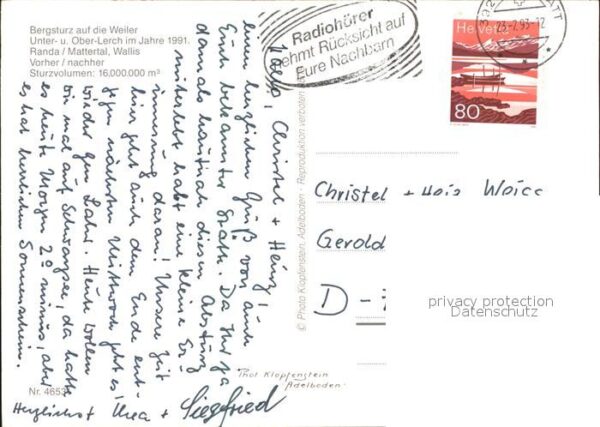 Bergsturz auf die Weiler
Unter- u. Ober-Lerch im Jahre 1991.
Randa / Mattertal, Wallis
Vorher / nachher
Sturzvolumen: 16,000.000 m³
Radiohörer
nehmt Rücksicht auf
Eure Nachbarn
23-2.93-12
Helvetia
80
Christel + Heinz,
einen herzlichen Gruß von
Euch bekannter Stätte. Da Ihr ja
damals hautnah diesen Absturz
miterlebt habt eine kleine Er-
innerung daran! Unsere Zeit
hier geht auch dem Ende ent-
gegen nächsten Mittwoch geht es
wieder gen Lahr. Heute wollen
wir mal auf Schwarzsee, da hatte
es heute Morgen 2° minus, aber
es hat herrlichen Sonnenschein.
Herzlichst
+ Siegfried
© Photo Klopfenstein, Adelboden · Reproduktion verboten
Christel + Weiss
Gerold
D-7
privacy protection
Datenschutz
Phot Klopfenstein
Adelboden
Nr. 4653